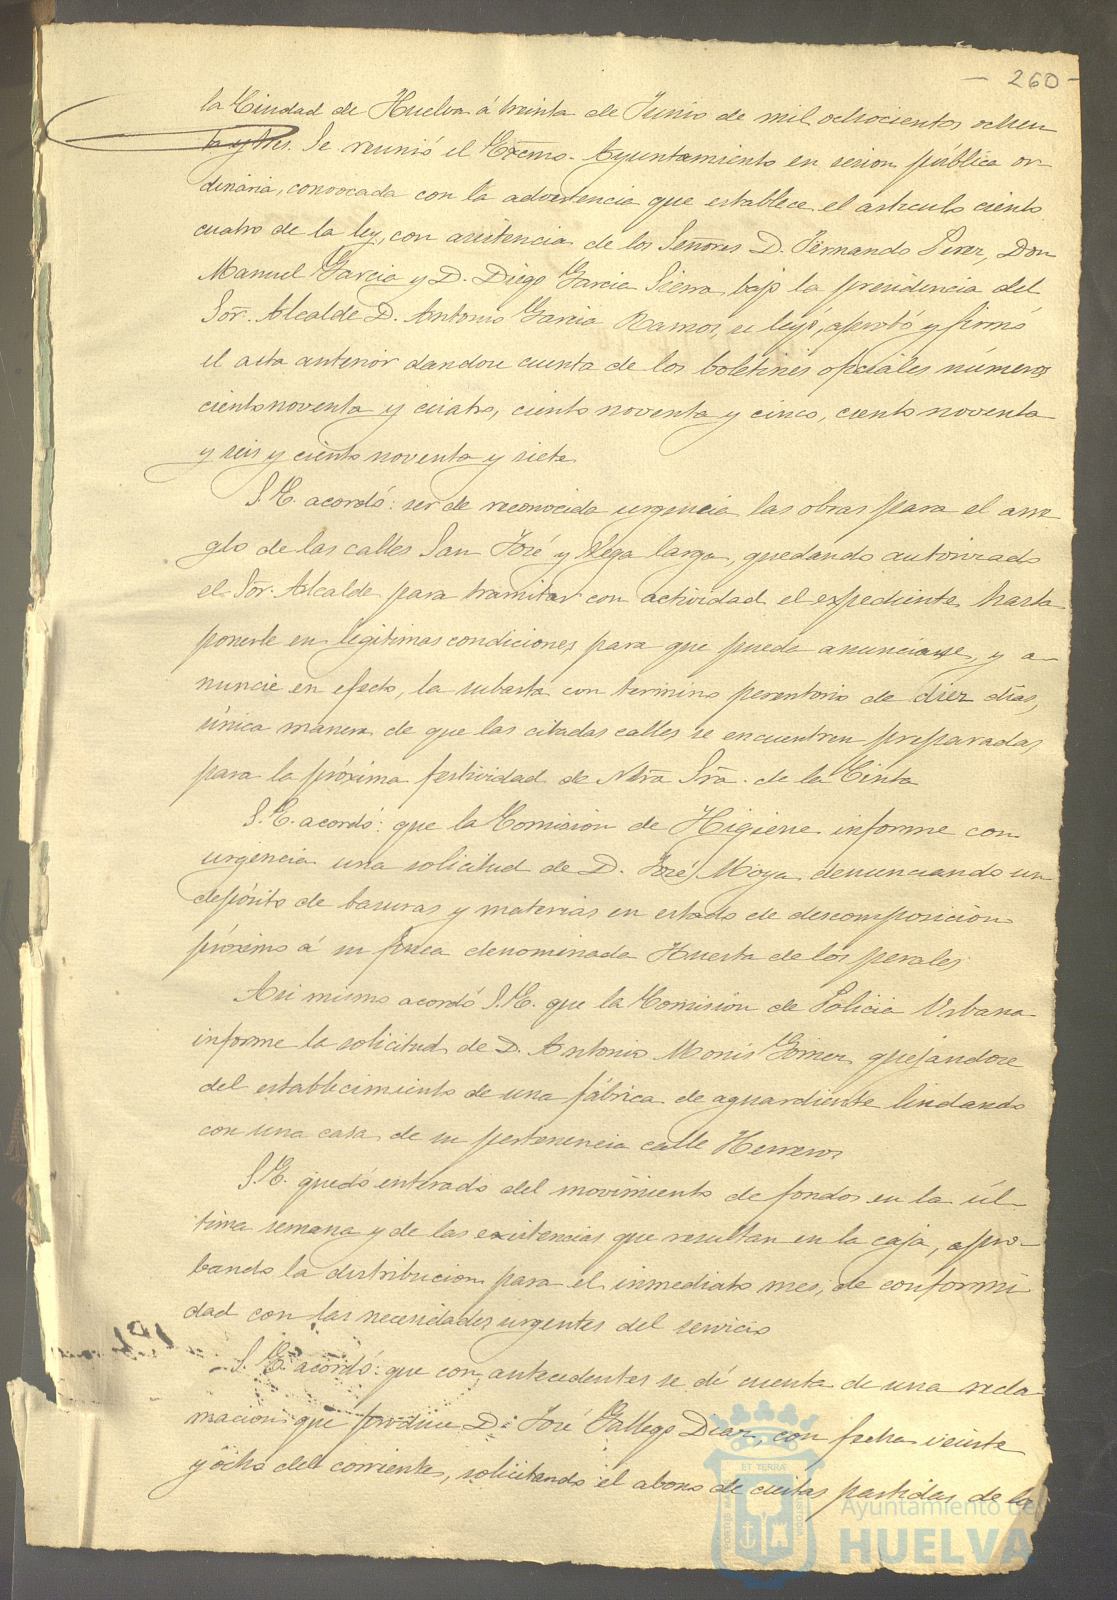 - 260 -
la Ciudad de Huelva á treinta de Junio de mil ochocientos ochen
ta y tres. Se reunió el Excmo. Ayuntamiento en sesion pública or-
dinaria, convocada con la advertencia que establece el artículo ciento
cuatro de la ley, con asistencia de los Señores D. Fernando Perez, Don
Manuel Garcia y D. Diego Garcia Sierra, bajo la presidencia del
Sor. Alcalde D. Antonio Garcia Ramos, se leyó, aprobó y firmó
el acta anterior dandose cuenta de los boletines oficiales números
ciento noventa y cuatro, ciento noventa y cinco, ciento noventa
y seis y ciento noventa y siete
S. E. acordó: ser de reconocida urgencia las obras para el arre
glo de las calles San José y Vega larga, quedando autorizado
el Sor. Alcalde para tramitar con actividad el expediente hasta
ponerle en legítimas condiciones para que pueda anunciarse, y a-
nuncie en efecto, la subasta con termino perentorio de diez días,
única manera de que las citadas calles se encuentren preparadas
para la próxima festividad de Ntra Sra. de la Cinta
S. E. acordó: que la Comision de Higiene informe con
urgencia una solicitud de D. José Moya denunciando un
depósito de basuras y materias en estado de descomposicion
próximo á su finca denominada Huerta de los perales
Asi mismo acordó S. E. que la Comisión de Policia Urbana
informe la solicitud de D. Antonio Monis Gomez quejándose
del establecimiento de una fábrica de aguardiente lindando
con una casa de su pertenencia calle Herreros
S. E. quedó enterado del movimiento de fondos en la úl-
tima semana y de las existencias que resultan en la caja, apro-
bando la distribucion para el inmediato mes, de conformi
dad con las necesidades urgentes del servicio
S. E. acordó: que con antecedentes se dé cuenta de una recla
macion que produce D. José Gallego Diaz, con fecha veinte
y ocho del corriente, solicitando el abono de ciertas partidas de la
Ayuntamiento de
HUELVA